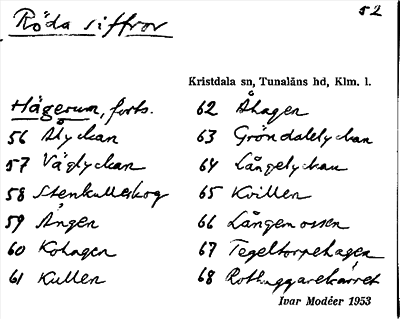 Röda siffror
52
Kristdala sn, Tunaläns hd, Klm. l.
Hägerum, forts.
56 Ålyckan
57 Väglyckan
58 Stenkulleskog
59 Ängen
60 Kohagen
61 Kullen
62 Åhagen
63 Gröndalslyckan
64 Långelyckan
65 Kvillen
66 Långemossen
67 Tegeltorpehagen
68 Rothuggarekärret
Ivar Modéer 1953